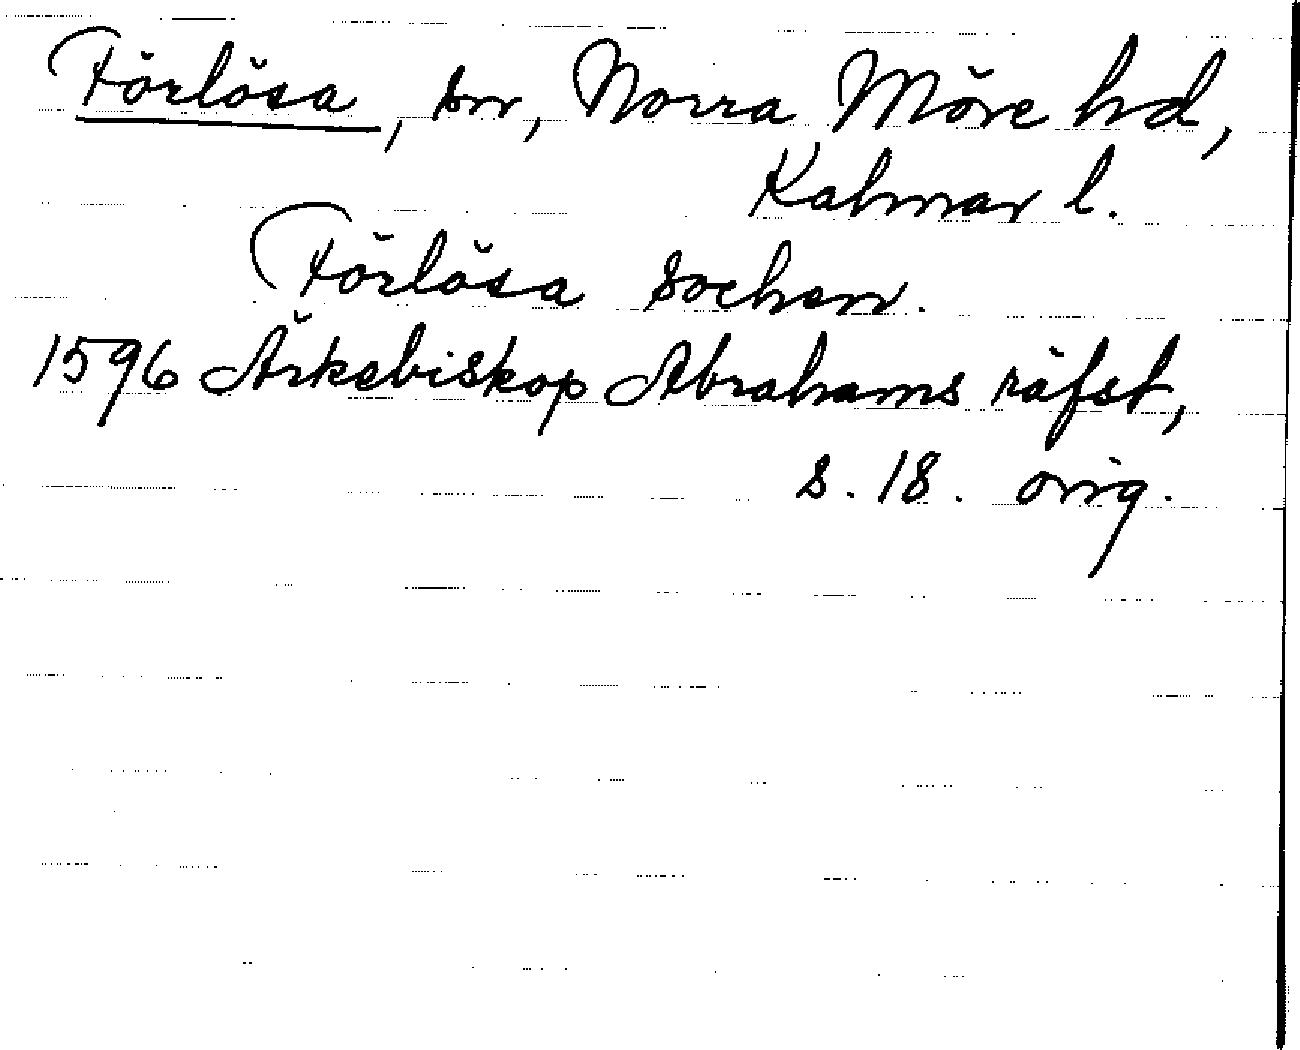 Förlösa, sn, Norra Möre hd,
Kalmar l.
Förlösa sochen.
1596 Ärkebiskop Abrahams räfst,
s. 18. orig.